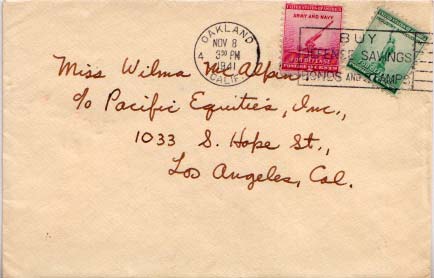 OAKLAND
CALIF.
NOV 8
3 30 PM
1941
4
UNITED STATES OF AMERICA
ARMY AND NAVY
FOR DEFENSE
BUY
DEFENSE SAVINGS
BONDS AND STAMPS
Miss Wilma
c/o Pacific Equities, Inc.,
1033 S. Hope St.,
Los Angeles, Cal.